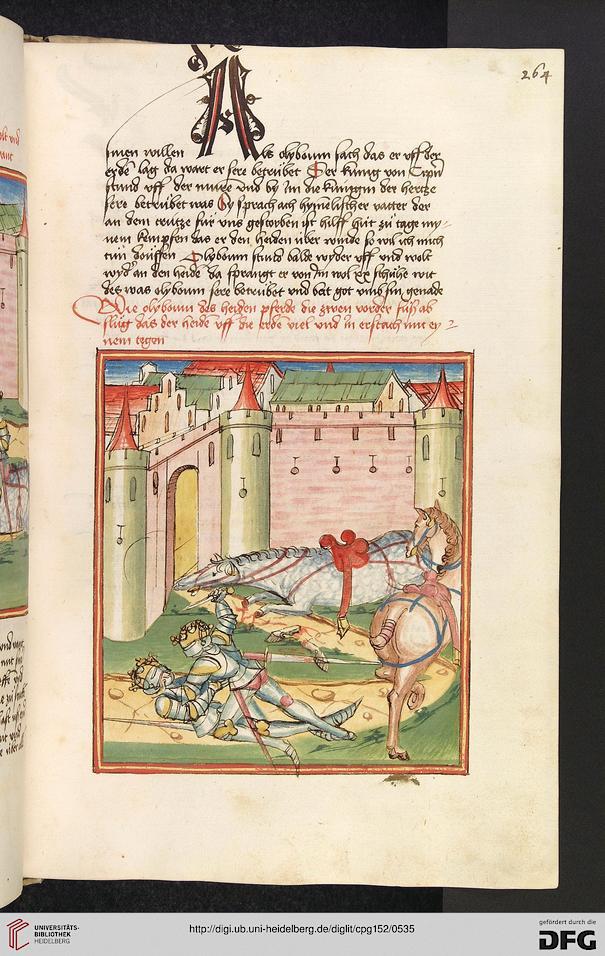 264
sinen willen Als olyboum sach das er uff der
erden lag da wart er sere betrübet Der künig von Cipri
stund uff der mure und by Im die künigin der hertze
sere betrübet was Sy sprach ach hymelischer vatter der
an dem crutze für uns gestorben ist hilff hüt zü tage my-
nem kempfen das er den heiden uber winde so wil ich mich
tün douffen Olyboum stund balde wyder uff und wolt
wyder an den heiden da sprangt er von Im wol schühe wit
des was olyboum sere betrübet und bat got umb sin genade
Wie olyboum des heiden pferde die zwen vorder füß ab
slüg das der heide uff die erden viel und in erstach mit ey-
nem tegen
UNIVERSITÄTS-
BIBLIOTHEK
HEIDELBERG
http://digi.ub.uni-heidelberg.de/diglit/cpg152/0535
gefördert durch die
DFG